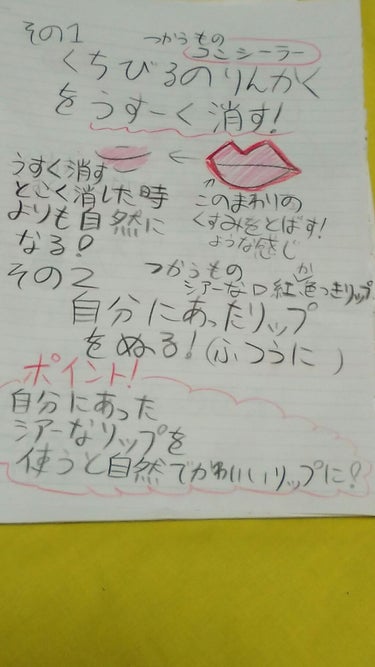 その1 つかうもの コンシーラー
くちびるのりんかく
をうすーく消す!
うすく消す
とこく消した時
よりも自然に
なる!
このまわりの
くすみをとばす!
ような感じ
その2 つかうもの
シアーな口紅か色つきリップ
自分にあったリップ
をぬる!(ふつうに)
ポイント!
自分にあった
シアーなリップを
使うと自然でかわいいリップに!